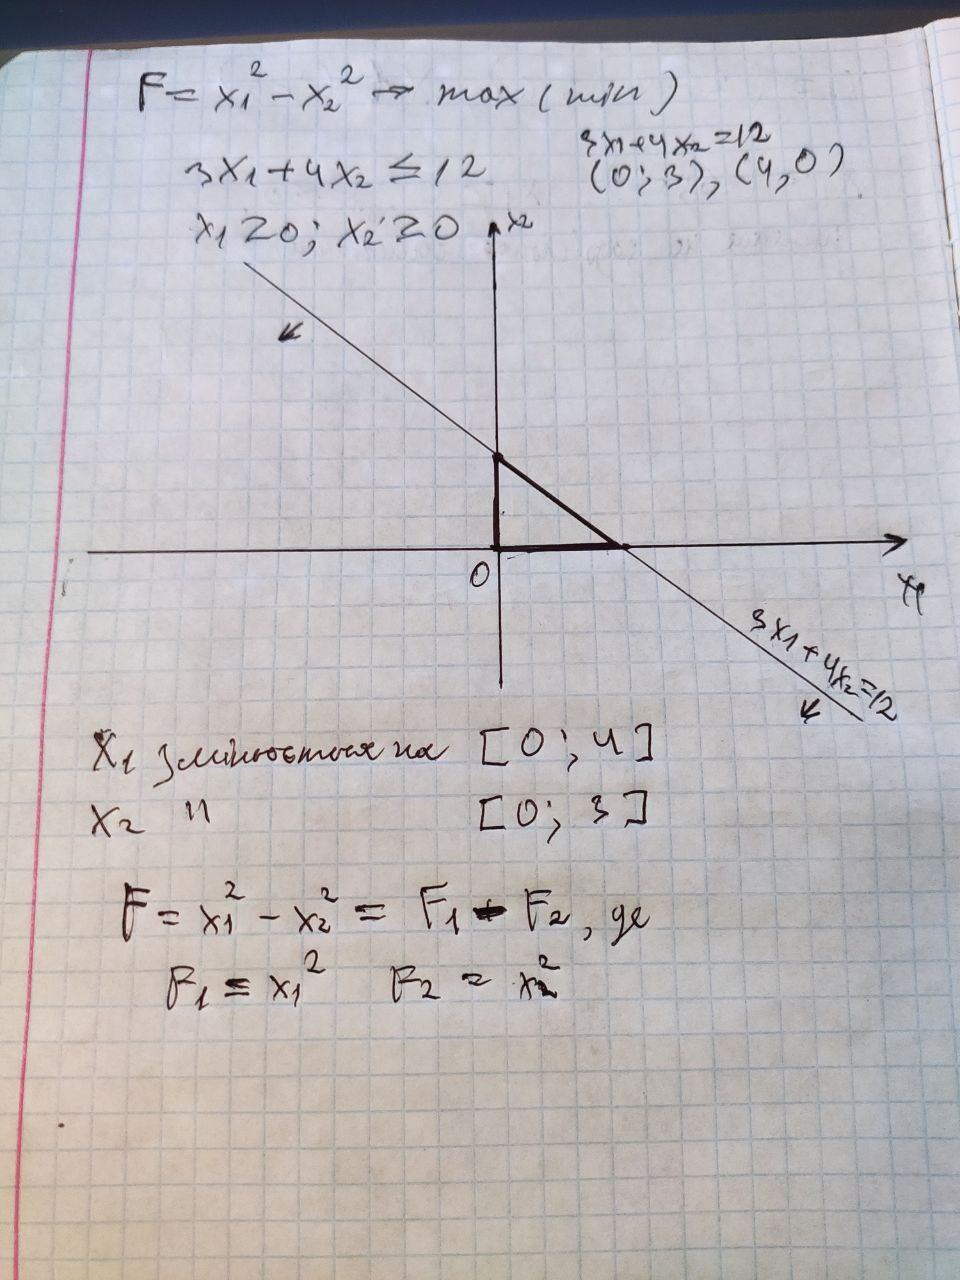 F = x₁² - x₂² → max (min)
3x₁ + 4x₂ ≤ 12
3x₁+4x₂=12
(0; 3), (4, 0)
x₁ ≥ 0; x₂ ≥ 0
x₂
0
x₁
3x₁+4x₂=12
x₁ змінюється на [0; 4]
x₂ " [0; 3]
F = x₁² - x₂² = F₁ - F₂, де
F₁ = x₁² F₂ = x₂²